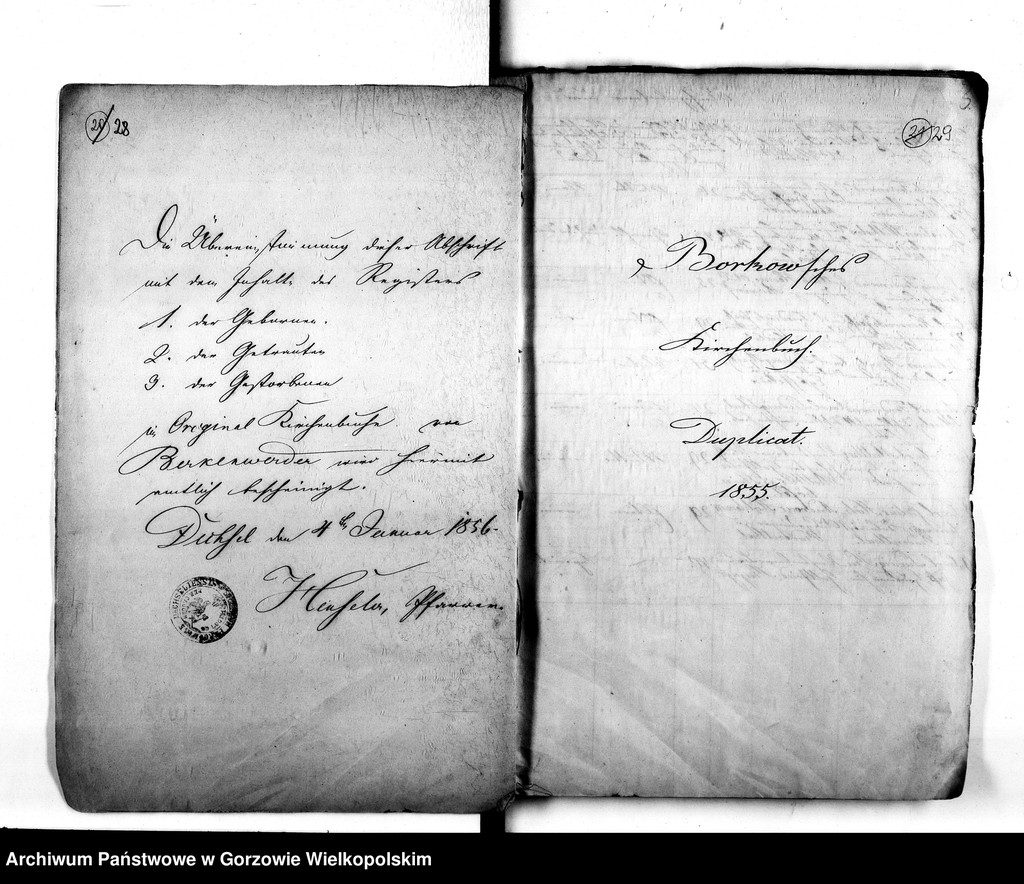 28
Die Übereinstimmung dieser Abschrift
mit dem Inhalte des Registers
1. der Gebornen.
2. der Getrauten
3. der Gestorbenen
im Original Kirchenbuche von
Berkenwerder wird hiermit
amtlich bescheinigt.
den 4ten Januar 1856.
Pfarrer
29
Borkowsches
Kirchenbuch.
Duplicat.
1855.
Archiwum Państwowe w Gorzowie Wielkopolskim